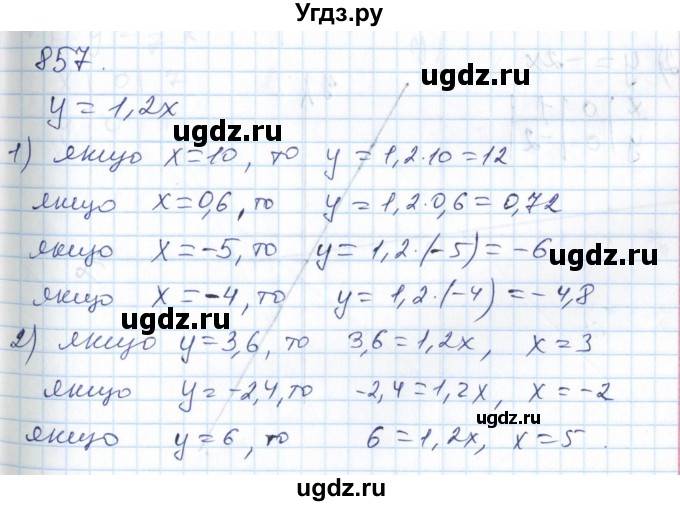 Угдз.ру
857.
y = 1,2x
1) якщо x=10, то y = 1,2·10=12
якщо x=0,6, то y = 1,2·0,6 = 0,72
якщо x=-5, то y = 1,2·(-5) = -6
якщо x=-4, то y = 1,2·(-4) = -4,8
2) якщо y=3,6, то 3,6=1,2x, x=3
якщо y=-2,4, то -2,4=1,2x, x=-2
якщо y=6, то 6=1,2x, x=5.
ugdz.ru
ugdz.ru
ugdz.ru
ugdz.ru
ugdz.ru
ugdz.ru
ugdz.ru
ugdz.ru